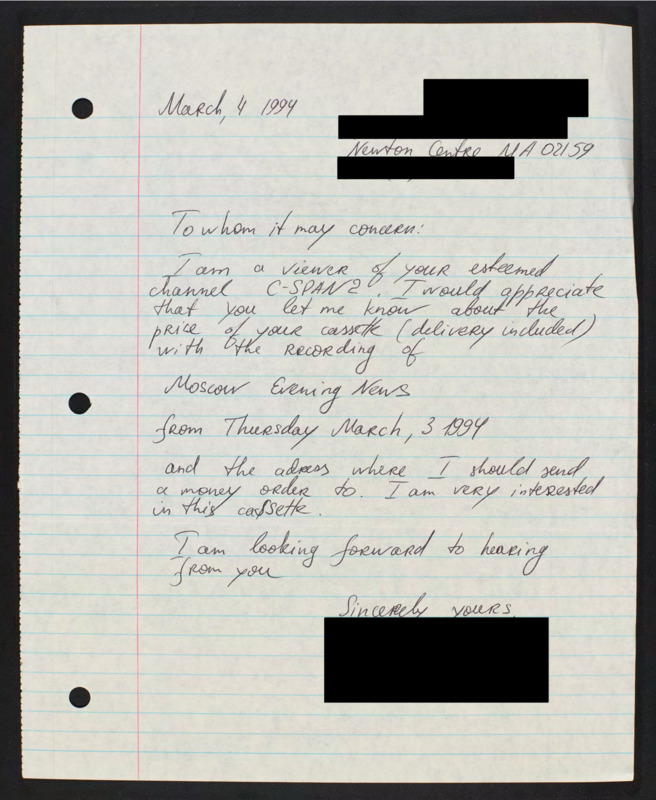 March, 4 1994
Newton Centre MA 02159
To whom it may concern:
I am a viewer of your esteemed
channel C-SPAN2. I would appreciate
that you let me know about the
price of your cassette (delivery included)
with the recording of
Moscow Evening News
from Thursday March, 3 1994
and the adress where I should send
a money order to. I am very interested
in this cassette.
I am looking forward to hearing
from you
Sincerely yours,